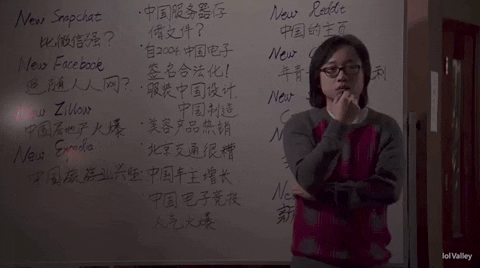 New Snapchat
比微信强？
New Facebook
人人网？
New Zillow
中国房地产火爆
New Expedia
中国旅游业兴旺
·中国服务器存
储文件？
·自2004中国电子
签名合法化！
·服装中国设计
中国制造
·美容产品热销
·北京交通很糟
·中国车主增长
中国电子竞技
人气火爆
New Reddit
中国的主页
New
New
New
lol Valley